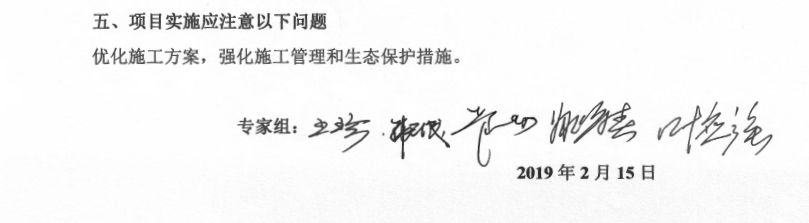 五、项目实施应注意以下问题
优化施工方案，强化施工管理和生态保护措施。
专家组：
2019年2月15日